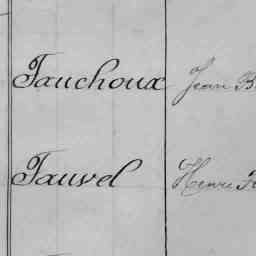 Fauchoux Jean B
Fauvel Henri